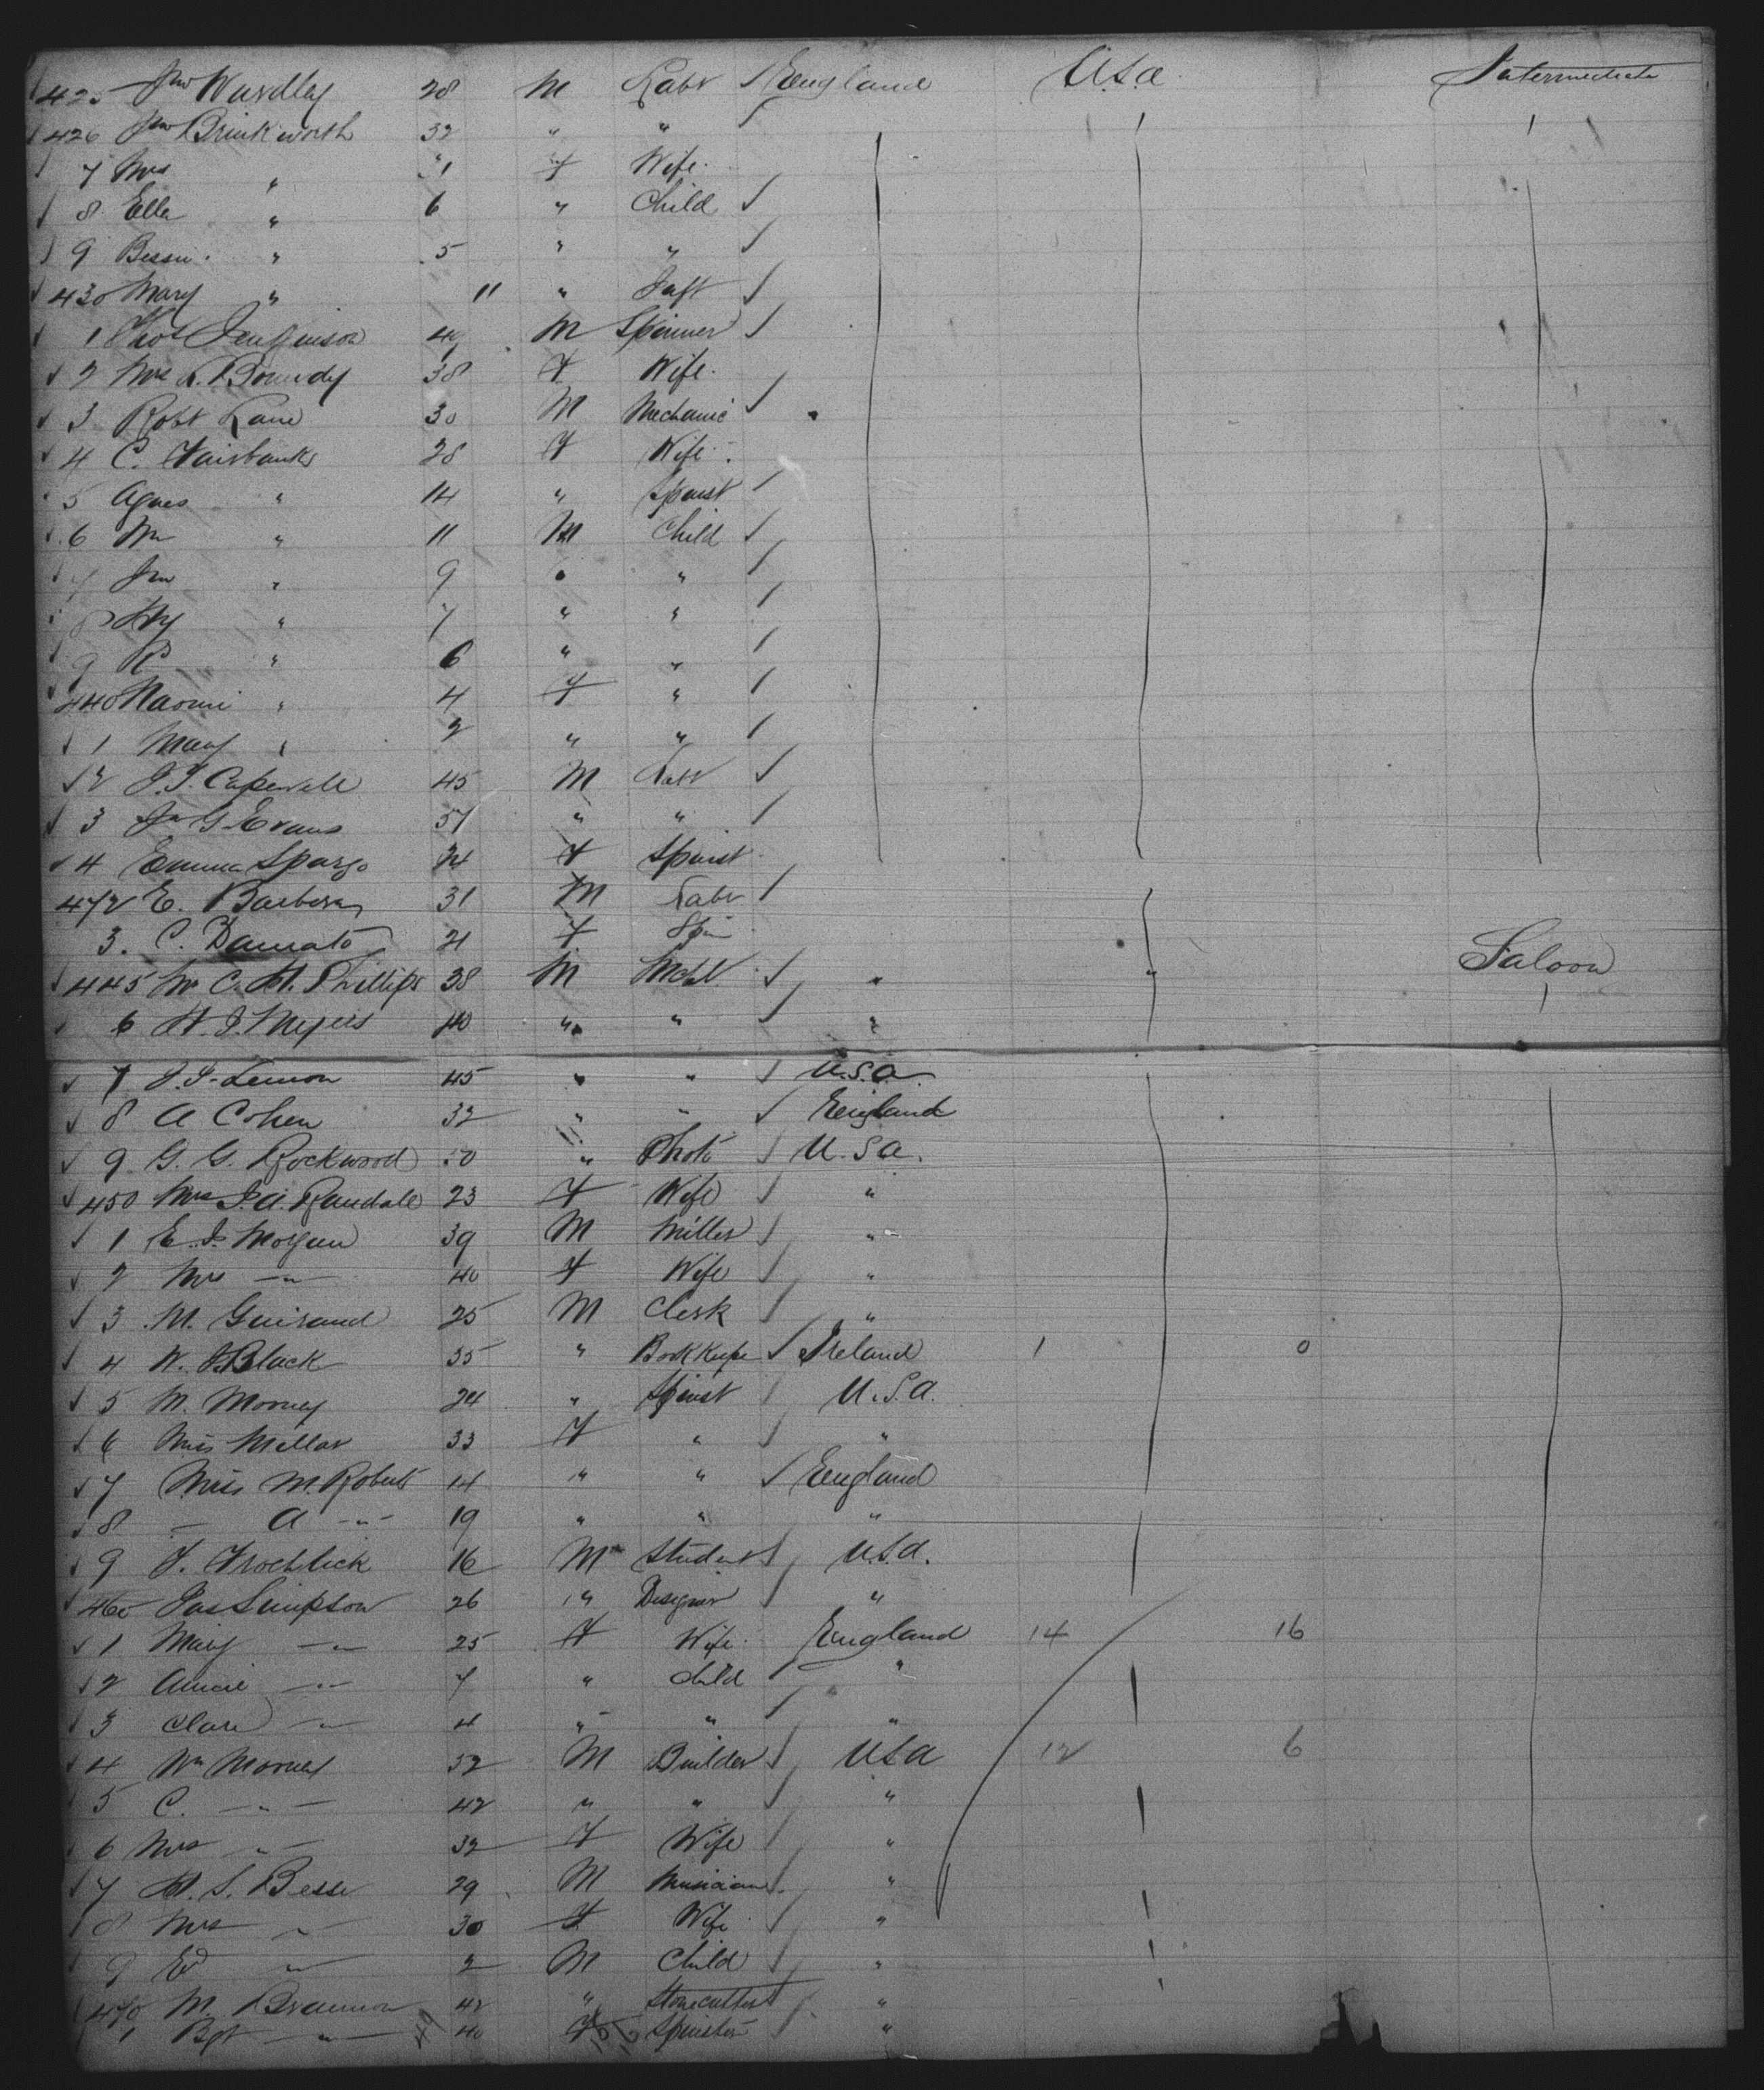 425 Jno Wardley 28 M Labr England U.S.a. Intermediate
426 Jno Brinkworth 32 " "
7 Mrs " 31 F Wife
8 Ella " 6 " Child
9 Bessie " 5 " "
430 Mary " 11 " Inft
1 Thos Jenkinson 49 M Spinner
2 Mrs L. Boundy 38 F Wife
3 Robt Lane 30 M Mechanic
4 C. Fairbanks 28 F Wife
5 Agnes " 14 " Spinst
6 Wm " 11 M Child
7 Jno " 9 " "
8 Hy " 7 " "
9 R " 6 " "
440 Naomi " 4 F "
1 Mary " 2 " "
2 J.T. Capewell 45 M Labr
3 Jn G Evans 51 " "
4 Emma Spargo 24 F Spinst
472 E. Barbera 31 M Labr
3. C. Damato 21 F Spin
445 Mr C. H. Phillips 38 M Mcht " " Saloon
6 H. J. Meyers 40 " " "
7 J. J. Lemon 45 " " U.S.a.
8 A Cohen 32 " " England
9 G. G. Rockwood 50 " Photo U.S a.
450 Mrs J. A. Randall 23 F Wife "
1 E. J. Morgan 39 M Miller "
2 Mrs " 40 F Wife "
3 M. Guiraud 25 M Clerk "
4 W. J. Black 35 " Bookkeepr Ireland 1 0
5 M. Morney 24 " Spinst U.S.a.
6 Miss Millar 33 F " "
7 Miss M. Roberts 14 " " England
8 — A -"- 19 " " "
9 F. Froehlick 16 M Student U.S.a.
460 Jas Simpson 26 " Designer "
1 Mary " 25 F Wife England 14 16
2 Annie " 7 " Child "
3 Clara " 4 " " "
4 Wm Morney 52 M Builder USa 12 6
5 C. -"- 42 " " "
6 Mrs " 32 F Wife "
7 H. S. Besse 29 M Musician "
8 Mrs " 30 F Wife "
9 Ed " 2 M Child "
470 M. Brannon 42 " Stonecutter "
1 Bgt " 40 F Spinster "
49